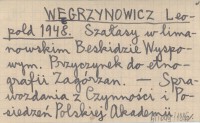 WĘGRZYNOWICZ Leo-
pold 1948. Szałasy w lima-
nowskim Beskidzie Wyspo-
wym. Przyczynek do etno-
grafii Zagórzan. — Spra-
wozdania z Czynności i Po-
siedzeń Polskiej Akademii